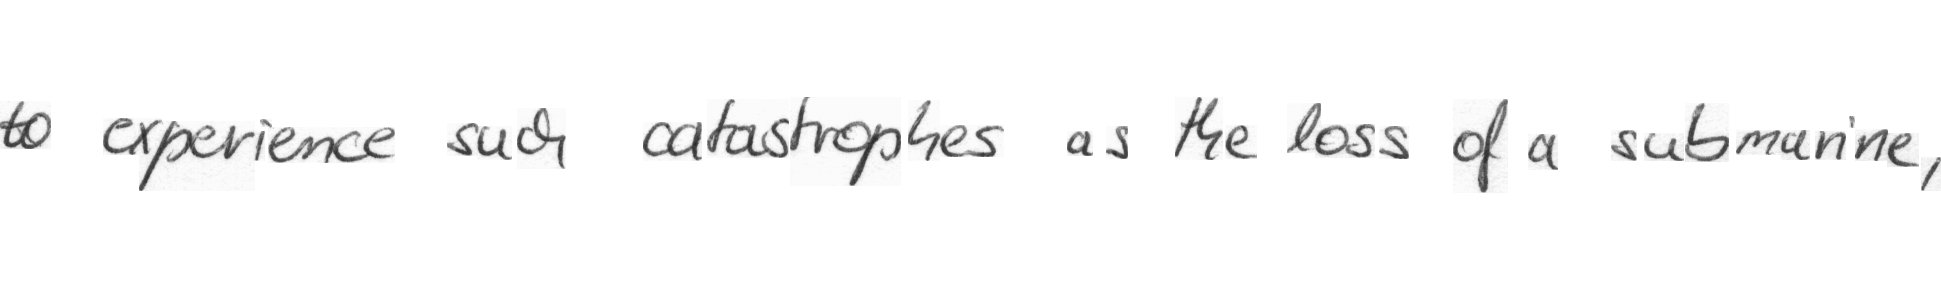 to experience such catastrophes as the loss of a submarine,